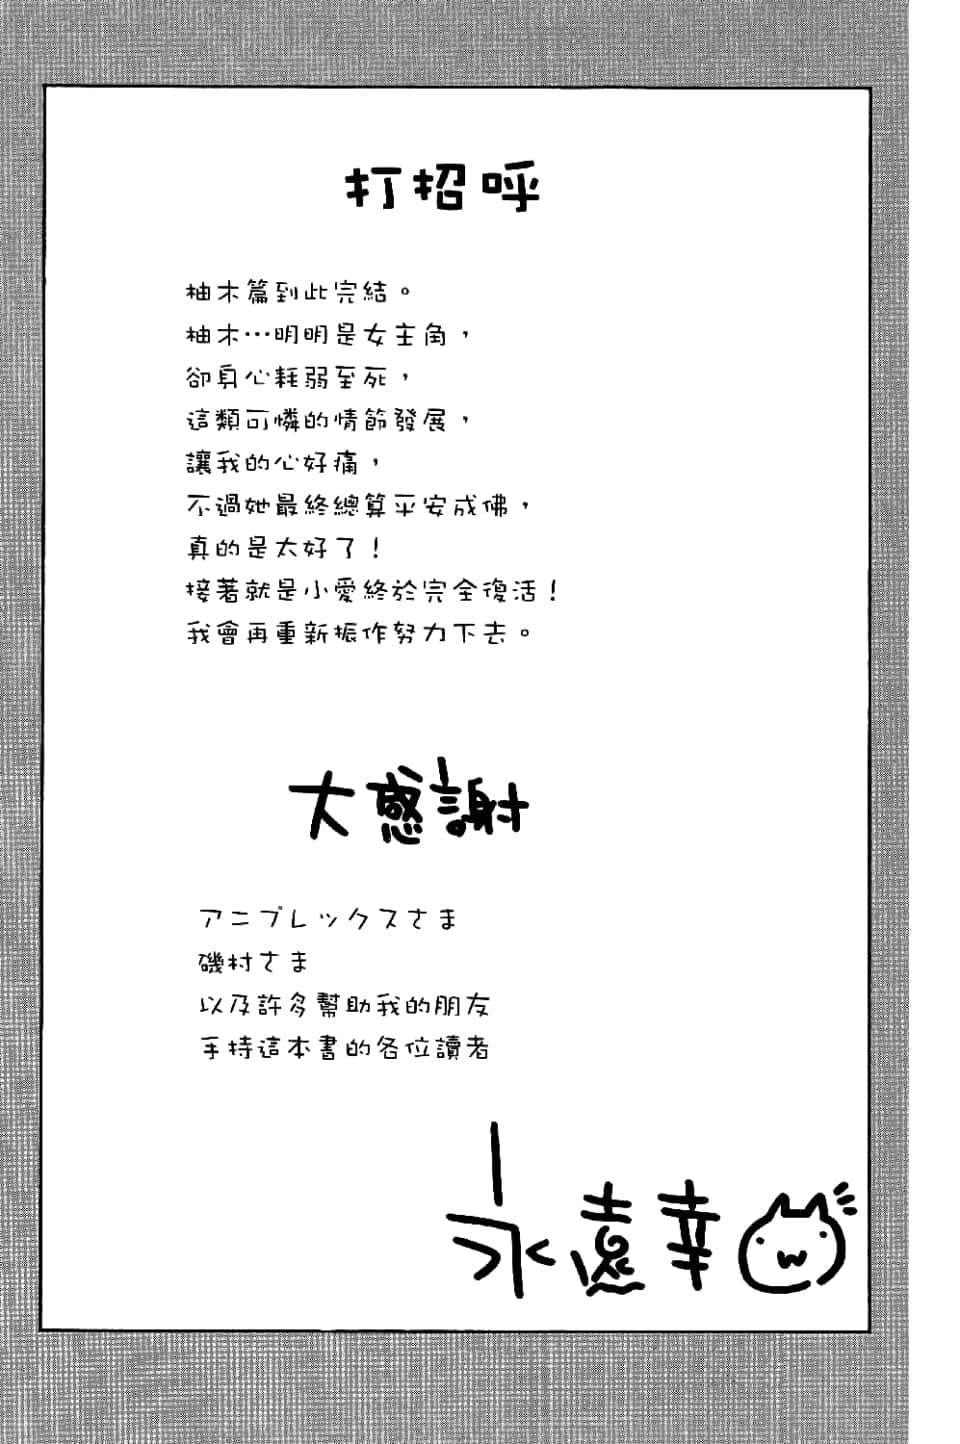 打招呼
柚木篇到此完結。
柚木…明明是女主角，
卻身心耗弱至死，
這類可憐的情節發展，
讓我的心好痛，
不過她最終總算平安成佛，
真的是太好了！
接著就是小愛終於完全復活！
我會再重新振作努力下去。
大感謝
アニプレックスさま
磯村さま
以及許多幫助我的朋友
手持這本書的各位讀者
永遠幸